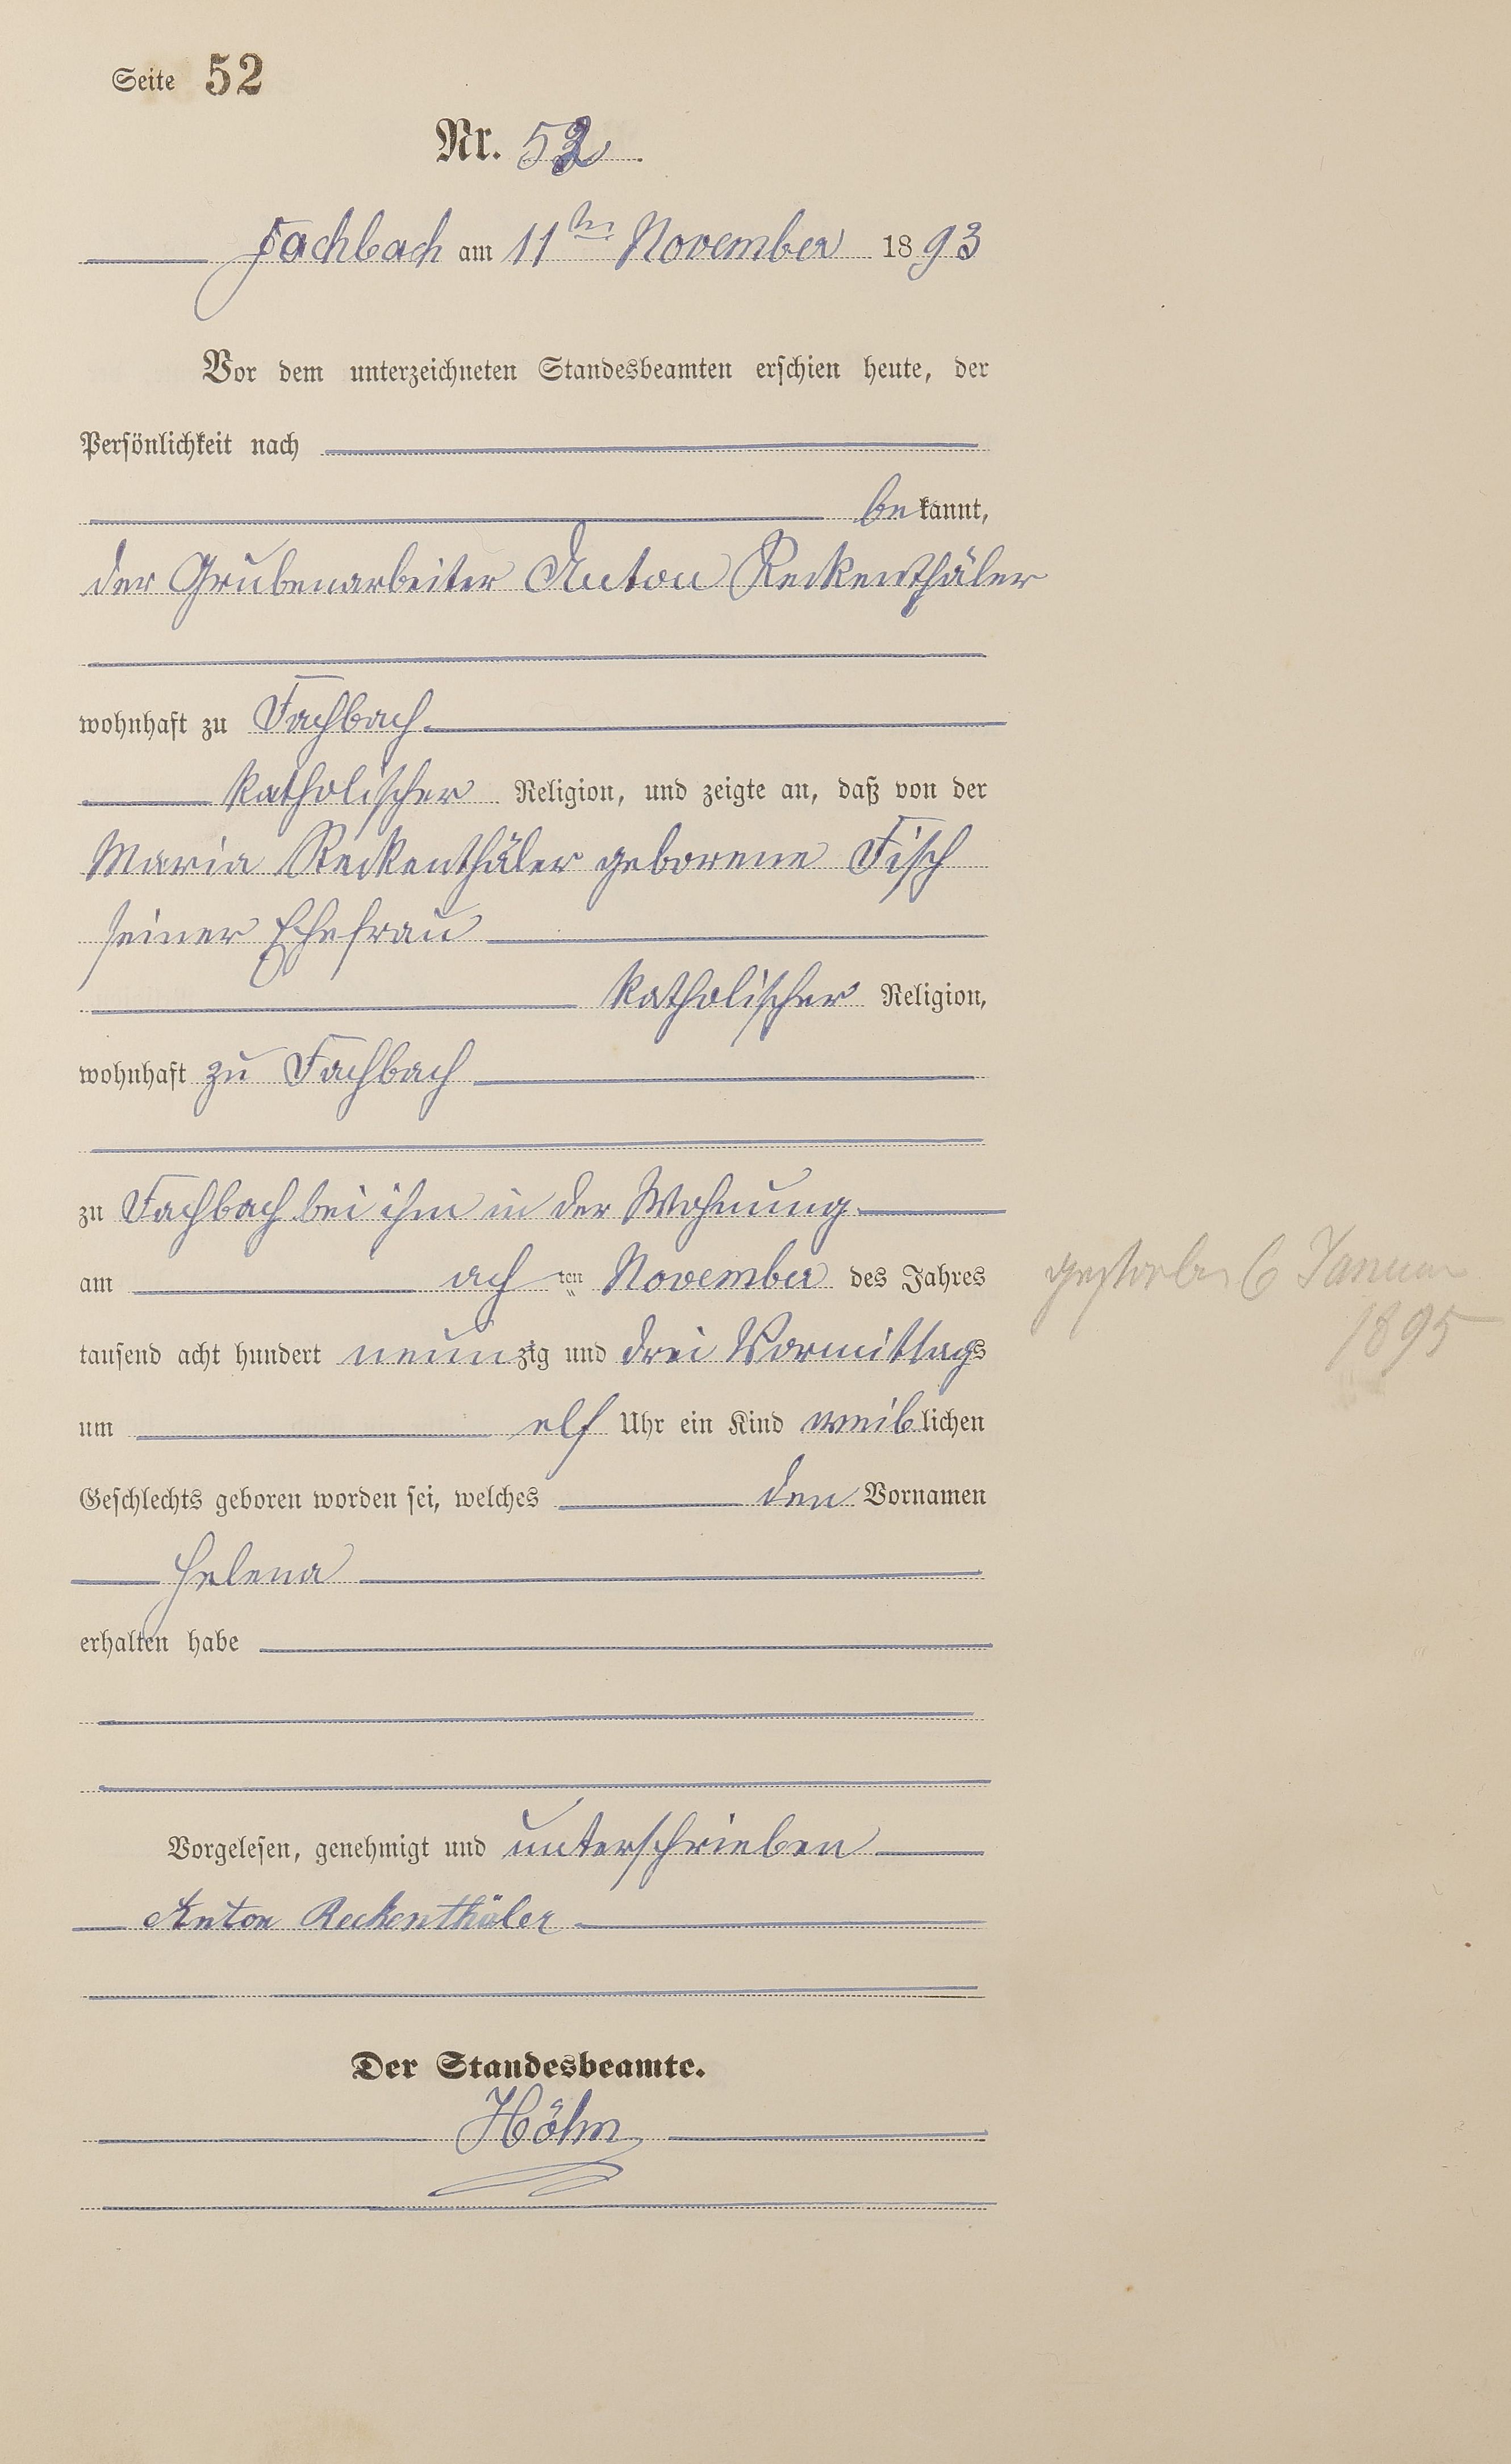 Seite 52
Nr. 52.
Fachbach am 11ten November 1893
Vor dem unterzeichneten Standesbeamten erschien heute, der
Persönlichkeit nach
bekannt,
der Grubenarbeiter Anton Reckenthäler
wohnhaft zu Fachbach
katholischer Religion, und zeigte an, daß von der
Maria Reckenthäler geborene Fisch
seiner Ehefrau
katholischer Religion,
wohnhaft zu Fachbach
zu Fachbach bei ihm in der Wohnung
am ach ten November des Jahres
gestorben 6 Januar
1895
tausend acht hundert neunzig und drei Vormittags
um elf Uhr ein Kind weiblichen
Geschlechts geboren worden sei, welches den Vornamen
Helena
erhalten habe
Vorgelesen, genehmigt und unterschrieben
Anton Reckenthäler
Der Standesbeamte.
Höhn